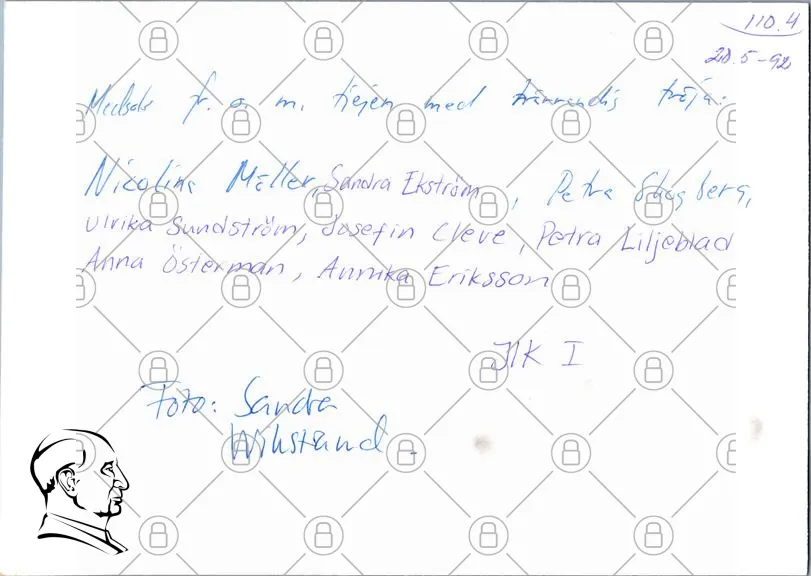 110.4
20.5-92
Medsols fr. o. m. tjejen med tröja:
Nicolina Möller, Sandra Ekström, Petra Skogberg,
Ulrika Sundström, Josefin Cleve, Petra Liljeblad
Anna Österman, Annika Eriksson
JIK I
Foto: Sandra
Wikstrand